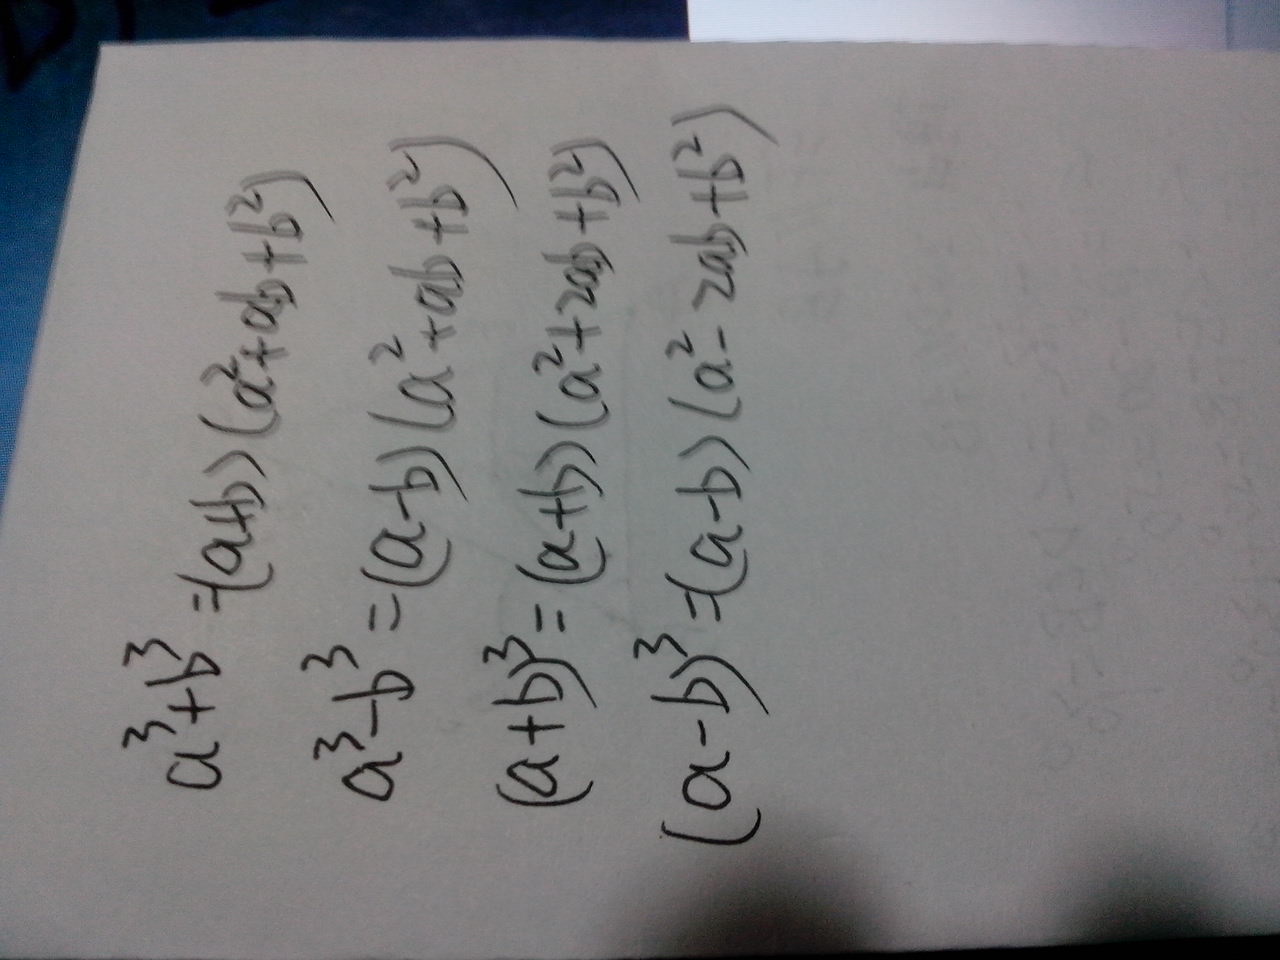 a³+b³=(a+b)(a²+ab+b²)
a³-b³=(a-b)(a²+ab+b²)
(a+b)³=(a+b)(a²+2ab+b²)
(a-b)³=(a-b)(a²-2ab+b²)